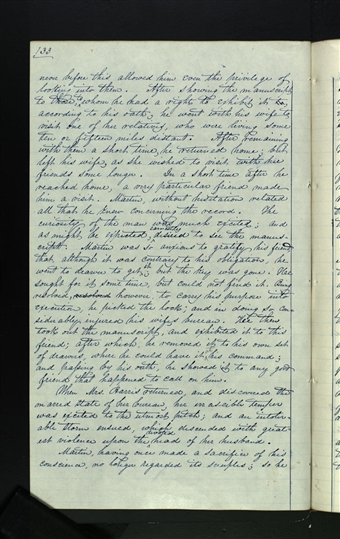 133
never before this, allowed him even the privilege of
looking into them. After showing the manuscript
to those, whom he had a right to exhibit it to,
according to his oath, he went with his wife to
visit one of her relatives, who were living some
ten or fifteen miles distant. After remaining
with them a short time, he returned home; but
left his wife, as she wished to visit with her
friends some longer. In a short time after he
reached home, a very particular friend made
him a visit. Martin, without hesitation related
all that he knew concerning the record. The
curiosity of the man was much excited; and
as might be expected, desired to see the manus-
cript. Martin was so anxious to gratify his friend
that, although it was contrary to his obligation, he
went to drawer to get it, but the key was gone. He
sought for it some time, but could not find it.
resolved, however to carry his purpose into
execution, he picked the lock; and in doing so, con-
siderably injured his wife's bureau. He then
took out the manuscript, and exhibited it to this
friend; after which he removed it to his own set
of drawers, where he could have it, his command;
and passing by his oath, he showed it to any good
friend that happened to call on him.
When Mrs Harris returned, and discovered the
marred state of her bureau, her irascible temper
was excited to the utmost pitch; and an intoler-
able storm ensued, which descended with great-
est violence upon the devoted head of her husband.
Martin, having once made a sacrifice of his
conscience, no longer regarded its scruples; so he